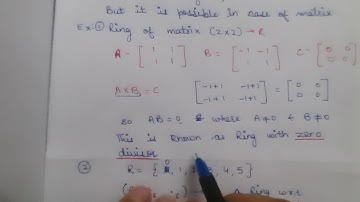 But it is possible in case of matrix
Ex:① Ring of matrix (2x2) → R
A = [1 1 1 1] B = [-1 -1 1 1] C = [0 0 0 0]
A×B = C [-1+1 -1+1 -1+1 -1+1] = [0 0 0 0]
so AB=0 where A≠0 & B≠0
This is known as Ring with zero
divisor
② R = { 0, 1, 4, 5 }
Ring